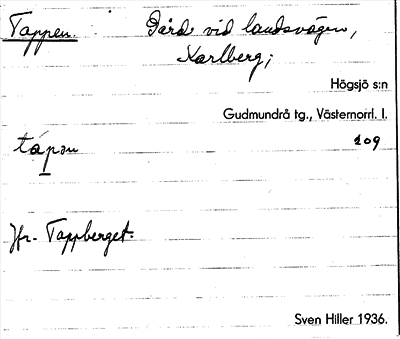 Tappen. Gård vid landsvägen,
Karlberg;
Högsjö s:n
Gudmundrå tg., Västernorrl. l.
tápən 209
Jfr. Tappberget.
Sven Hiller 1936.